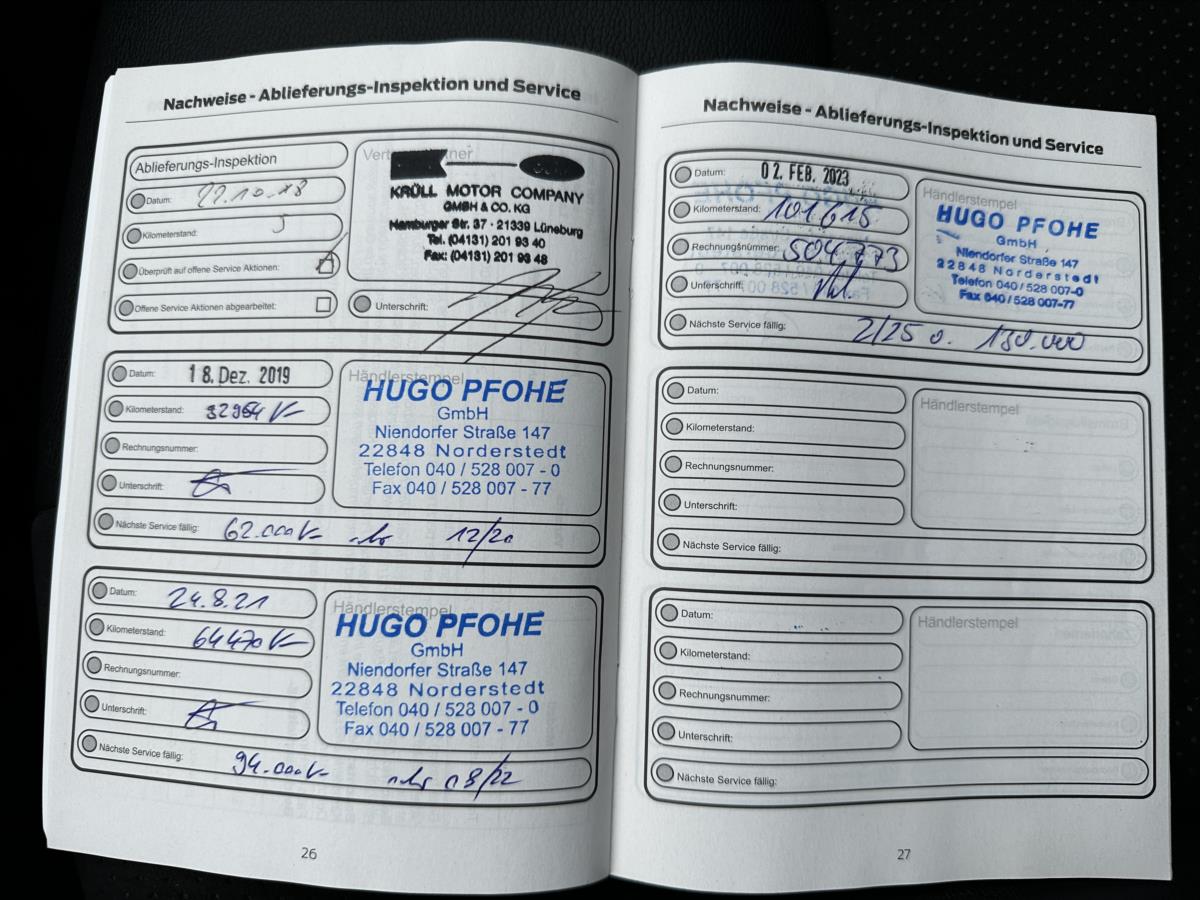 Nachweise - Ablieferungs-Inspektion und Service
Ablieferungs-Inspektion
Datum: 22.10.18
Kilometerstand: 5
Überprüft auf offene Service Aktionen:
Offene Service Aktionen abgearbeitet:
KRÜLL MOTOR COMPANY
GMBH & CO. KG
Hamburger Str. 37 · 21339 Lüneburg
Tel. (04131) 201 93 40
Fax: (04131) 201 93 48
Unterschrift:
Datum: 18. Dez. 2019
Kilometerstand: 32964
Rechnungsnummer:
Unterschrift:
Nächste Service fällig: 62.000 12/20
Händlerstempel
HUGO PFOHE
GmbH
Niendorfer Straße 147
22848 Norderstedt
Telefon 040 / 528 007 - 0
Fax 040 / 528 007 - 77
Datum: 24.8.21
Kilometerstand: 64470
Rechnungsnummer:
Unterschrift:
Nächste Service fällig: 94.000 08/22
Händlerstempel
HUGO PFOHE
GmbH
Niendorfer Straße 147
22848 Norderstedt
Telefon 040 / 528 007 - 0
Fax 040 / 528 007 - 77
26
Nachweise - Ablieferungs-Inspektion und Service
Datum: 02. FEB. 2023
Kilometerstand: 101615
Rechnungsnummer: 504773
Unterschrift:
Nächste Service fällig: 2/25 o. 130.000
Händlerstempel
HUGO PFOHE
GmbH
Niendorfer Straße 147
22848 Norderstedt
Telefon 040 / 528 007-0
Fax 040 / 528 007-77
Datum:
Kilometerstand:
Rechnungsnummer:
Unterschrift:
Nächste Service fällig:
Händlerstempel
Datum:
Kilometerstand:
Rechnungsnummer:
Unterschrift:
Nächste Service fällig:
Händlerstempel
27